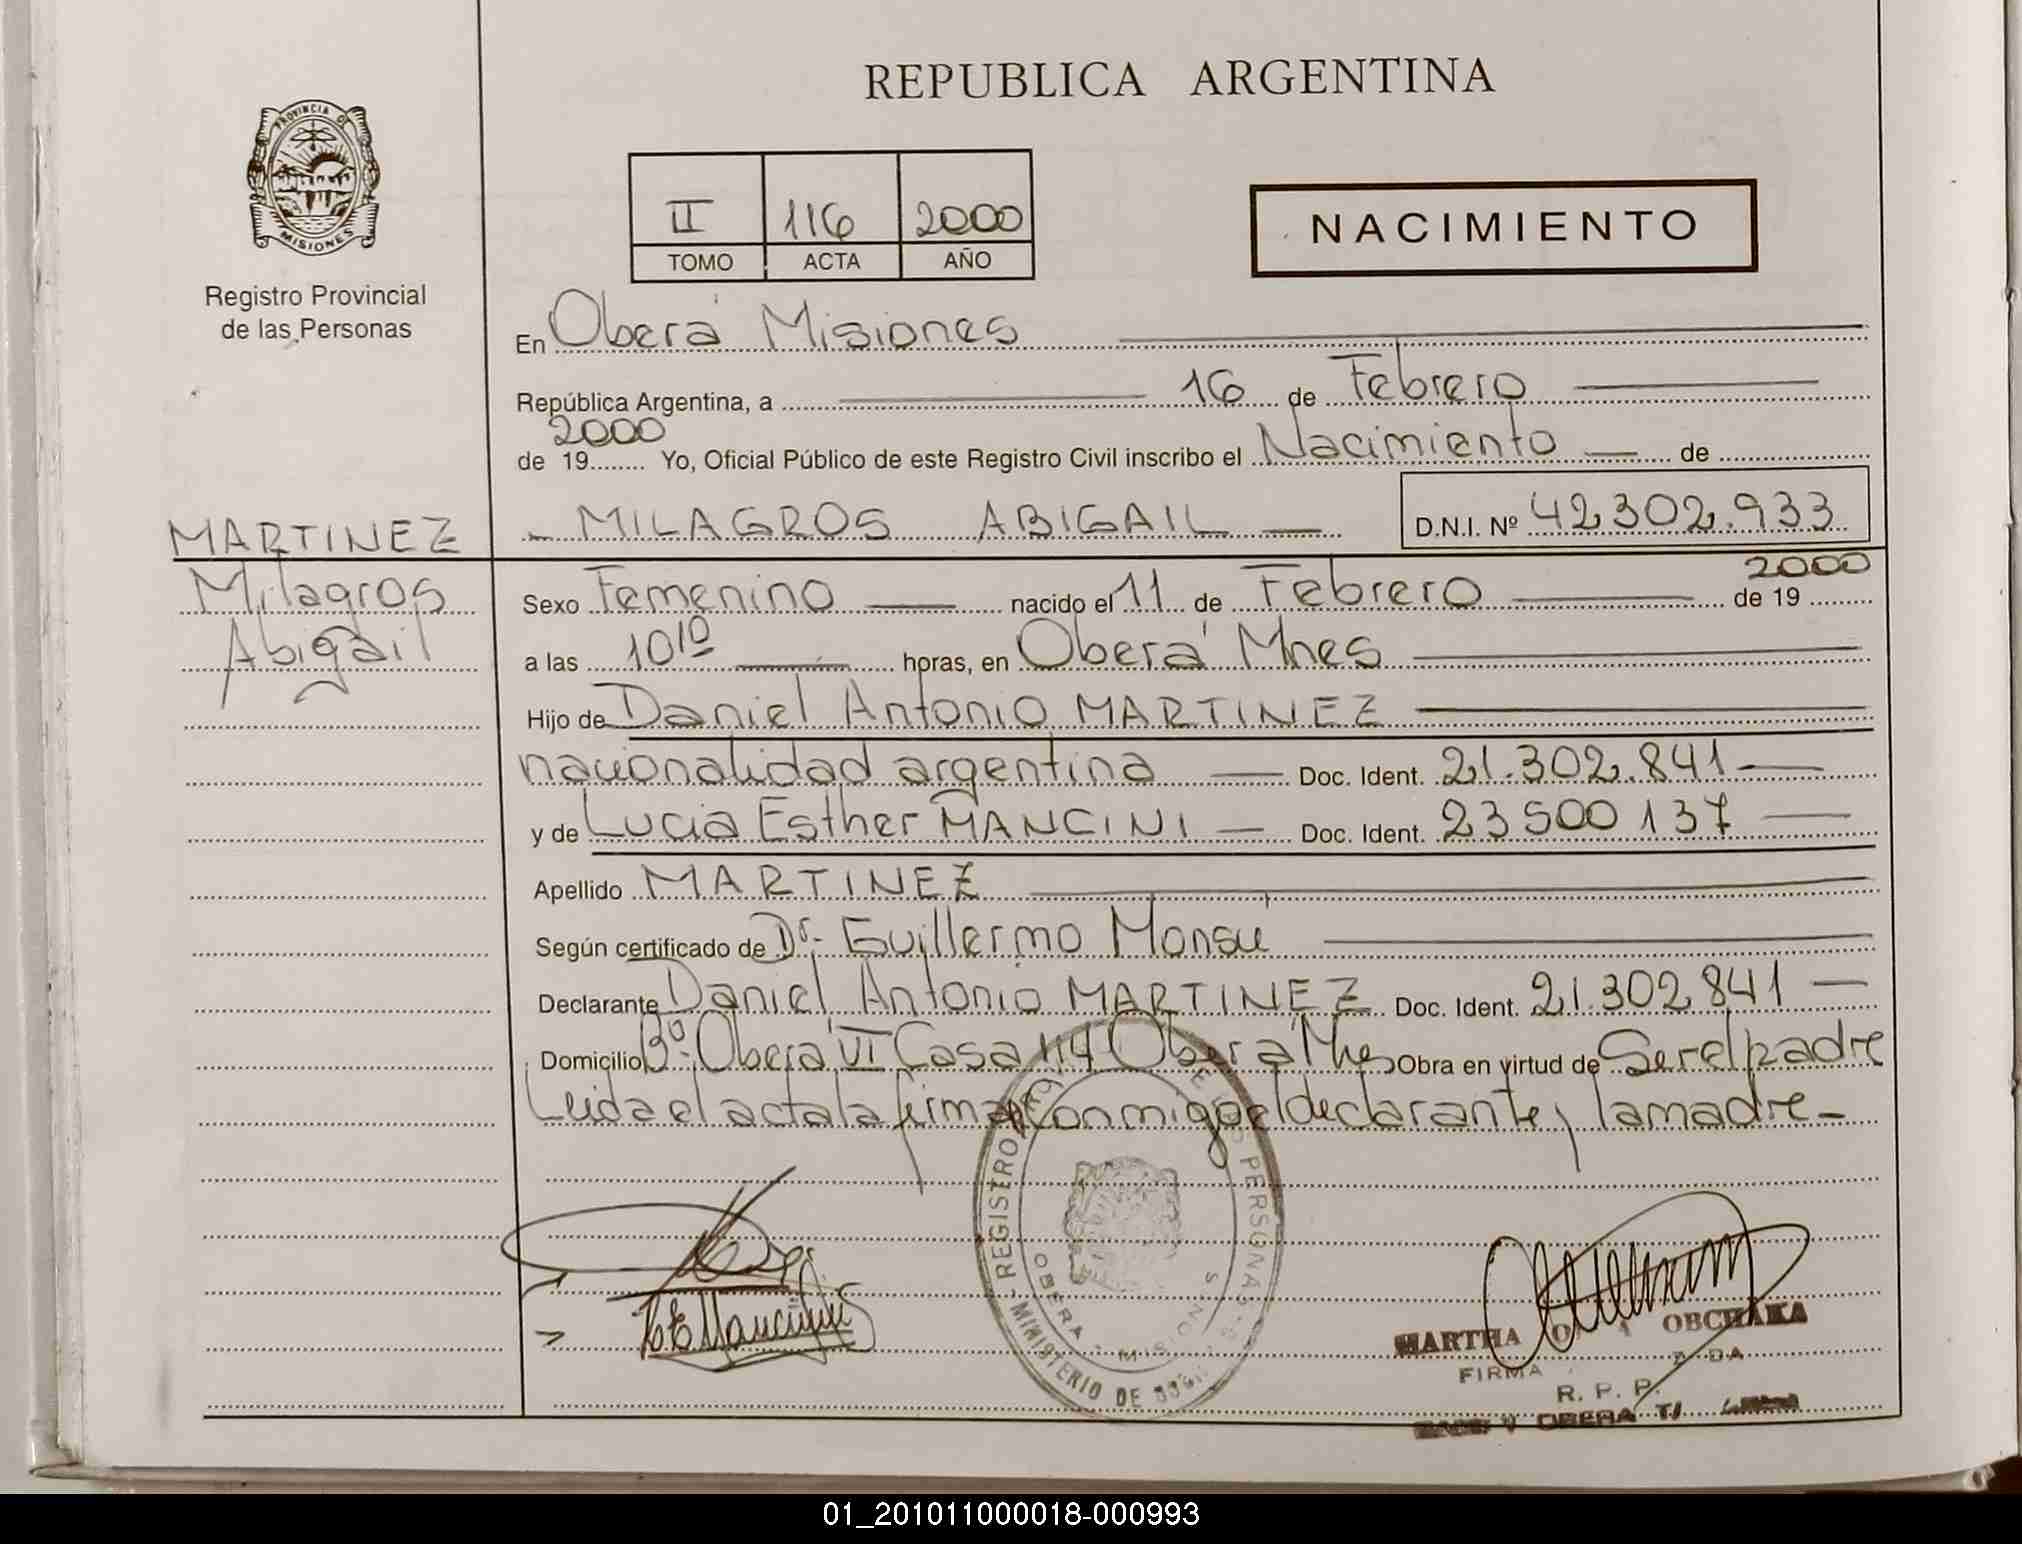 REPUBLICA ARGENTINA
PROVINCIA DE
MISIONES
Registro Provincial
de las Personas
II 116 2000
TOMO ACTA AÑO
NACIMIENTO
En Oberá Misiones
República Argentina, a 16 de Febrero
2000
de 19 Yo, Oficial Público de este Registro Civil inscribo el Nacimiento de
MARTINEZ
Milagros
Abigail
MILAGROS ABIGAIL D.N.I. Nº 42.302.933
Sexo Femenino nacido el 11 de Febrero de 19 2000
a las 10¹⁰ horas, en Oberá Mnes
Hijo de Daniel Antonio MARTINEZ
nacionalidad argentina Doc. Ident. 21.302.841
y de Lucia Esther MANCINI Doc. Ident. 23500137
Apellido MARTINEZ
Según certificado de Dr. Guillermo Monsu
Declarante Daniel Antonio MARTINEZ Doc. Ident. 21.302.841
Domicilio Bº. Oberá VI Casa 114 Oberá Mnes Obra en virtud de Ser el padre
Leida el acta la firman conmigo el declarante y la madre
REGISTRO PERSONAS
MINISTERIO DE
OBERA MISIONES
L E Mancini
MARTHA OBCHAKA
FIRMA
R. P. P.
OBERA
01_201011000018-000993